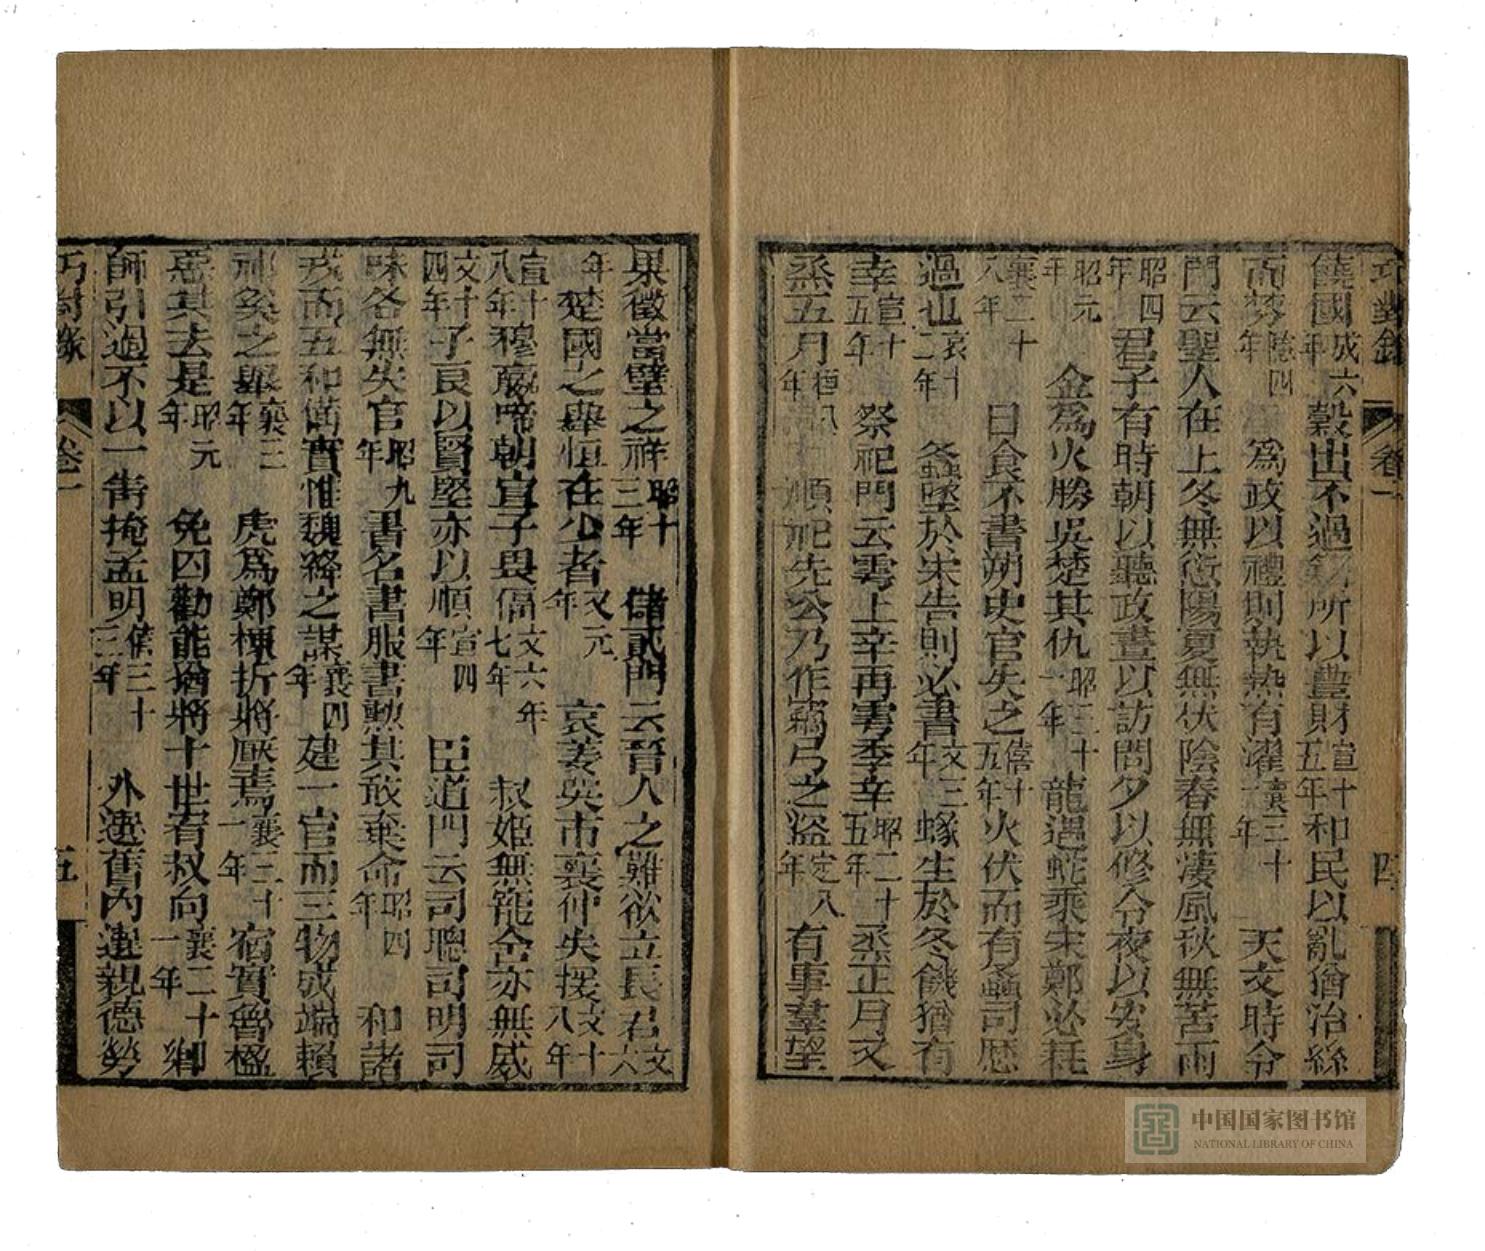 巧對錄 卷一 四
饑國成六年 穀出不過 所以豊財宣十五年和民以亂猶治絲
而棼隱四年 為政以禮則執熱有濯襄三十一年 天文時令
門云聖人在上冬無愆陽夏無伏陰春無凄風秋無苦雨
昭四年 君子有時朝以聽政晝以訪問夕以修令夜以安身
昭元年 金為火勝吳楚其仇昭三十一年 龍遇蛇乘宋鄭必耗
襄二十八年 日食不書朔史官失之僖十五年火伏而有螽司歷
過也哀十二年 螽墜於宋告則必書文三年 蝝生於冬饑猶有
幸宣十五年 祭祀門云雩上辛再雩季辛昭二十五年 烝正月又
烝五月桓八年 順祀先公乃作竊弓之盜定八年 有事羣望
果徵當璧之祥昭十三年 儲貳門云晉人之難欲立長君文六
年 楚國之舉恒在少者文元年 哀姜哭市襄仲失援文十八年
宣十八年穆嬴啼朝宣子畏偪文六年七年 叔姬無寵舍亦無威
文十四年 子良以賢堅亦以順宣四年 臣道門云司聰司明司
味各無失官昭九年 書名書服書勲其敢棄命昭四年 和諸
戎而五和備實惟魏絳之謀襄四年 建一官而三物成端賴
祁奚之舉襄三年 虎為鄭棟折將厭焉襄三十一年 宿實魯楹
惡其去是昭元年 免四勸能猶將十世宥叔向襄二十一年 鄉
師引過不以一眚掩孟明僖三十三年 外選舊內選親德勞
巧對錄 卷一 五
中国国家图书馆
NATIONAL LIBRARY OF CHINA